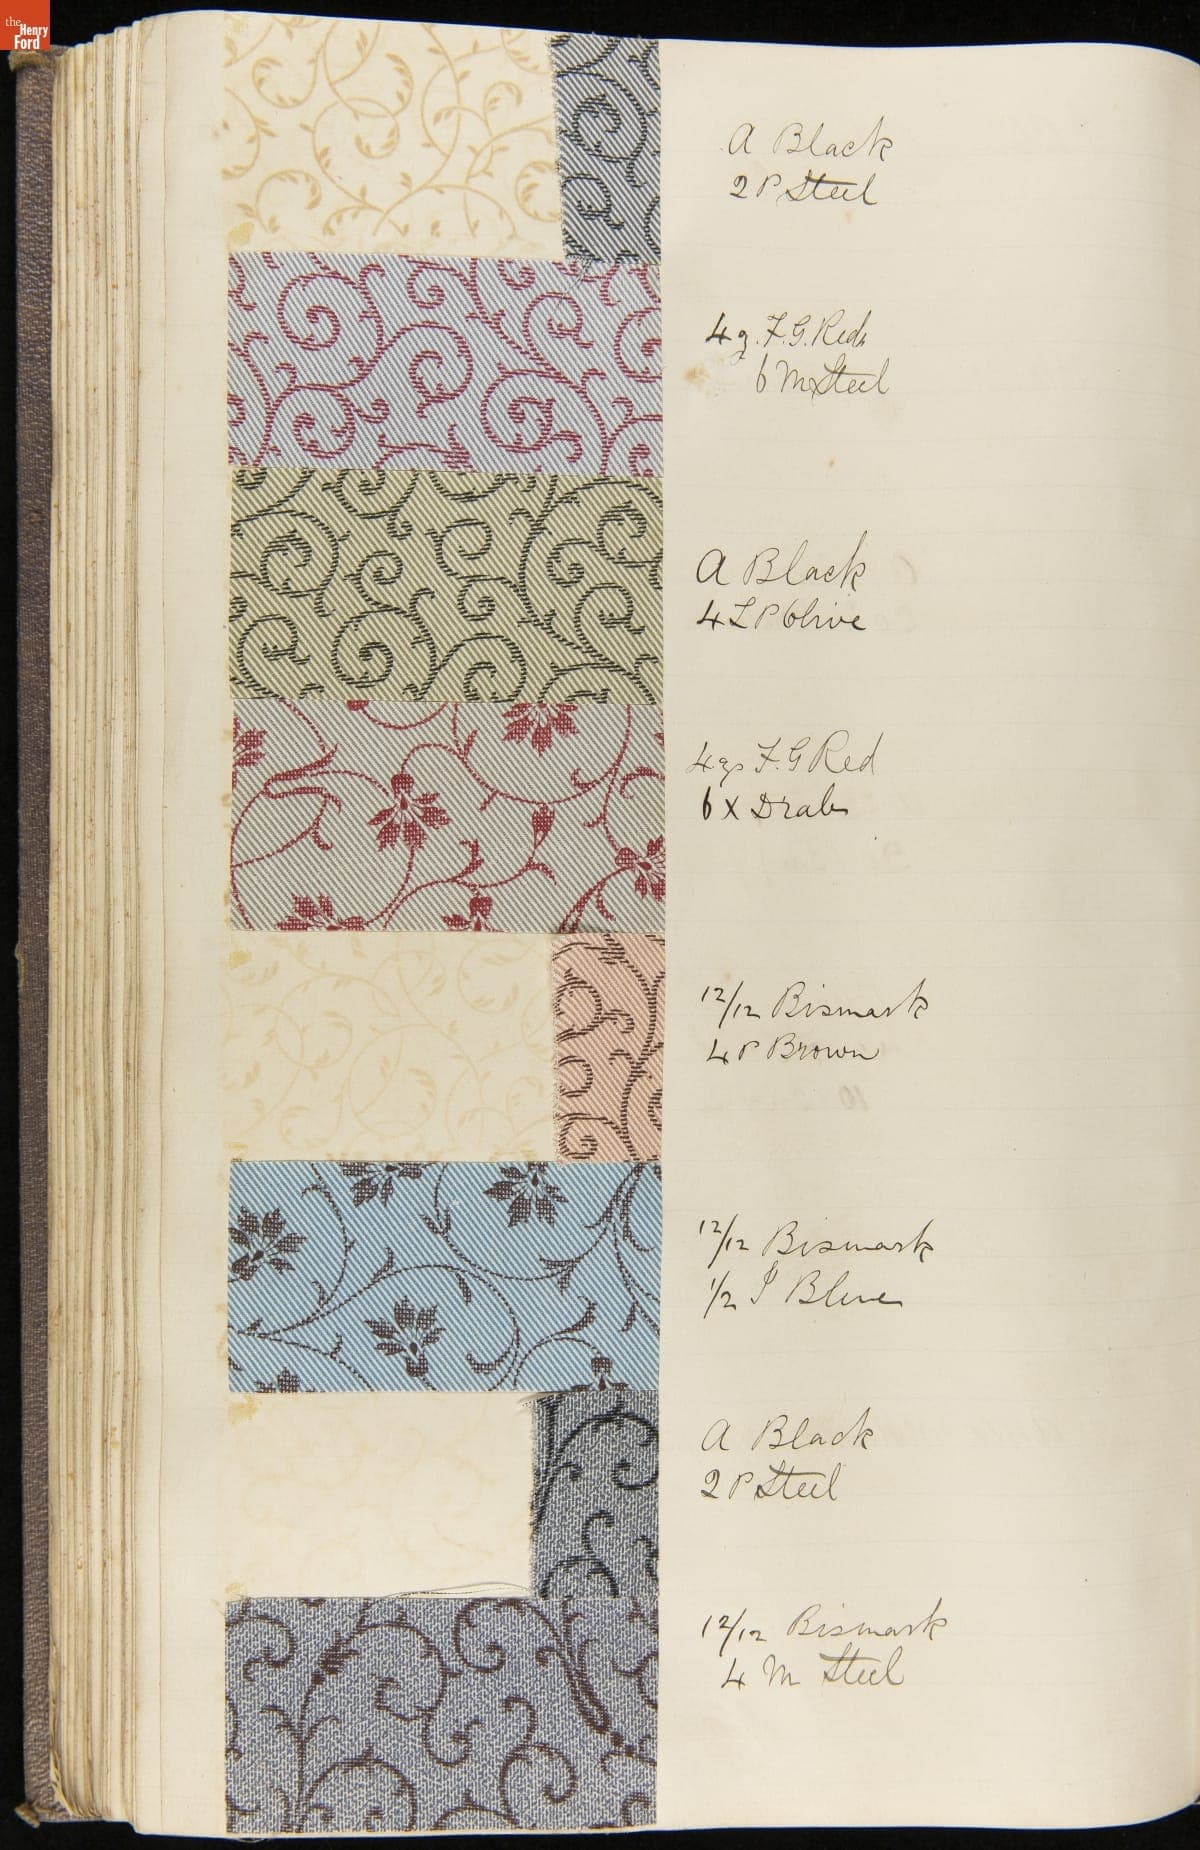 the Henry Ford
A Black
2 P Steel
4 g. F. G. Reds
6 M Steel
A Black
4 L P Olive
4 gs F. G Red
6 x Drab
12/12 Bismark
4 P Brown
12/12 Bismark
1/2 P Blue
A Black
2 P Steel
12/12 Bismark
4 M Steel